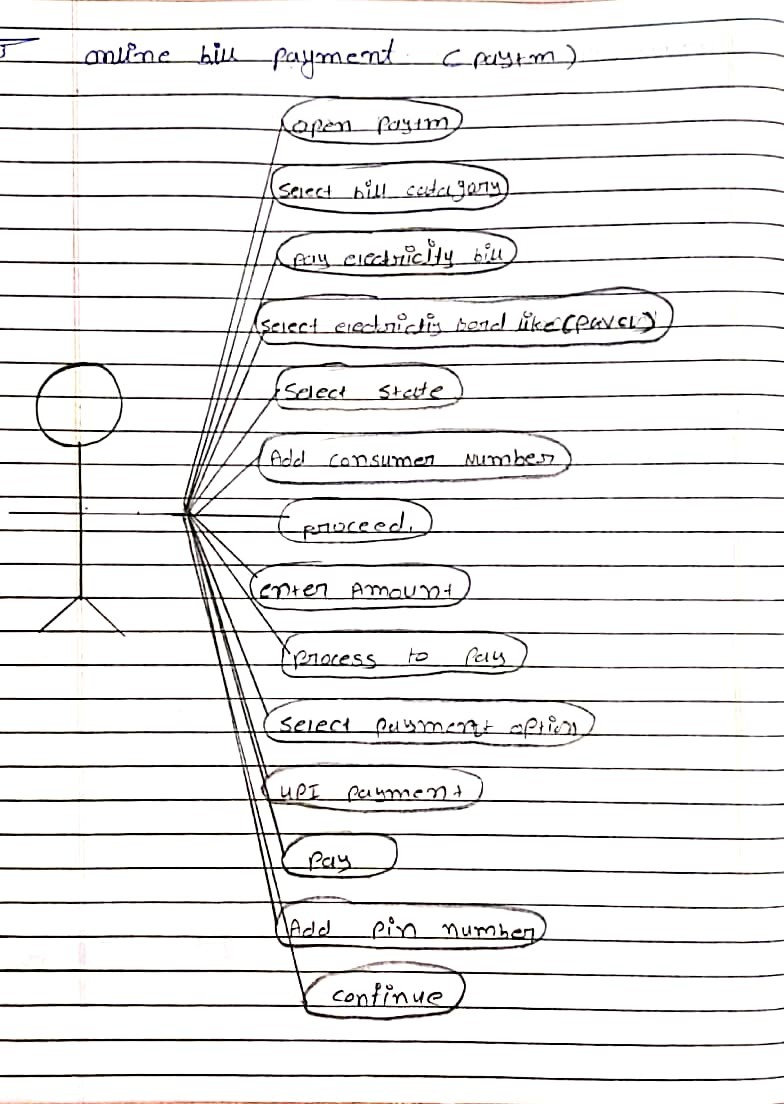 online bill payment (paytm)
open paytm
Select bill catagory
Pay electricity bill
Select electricity bord like (PGVCL)
Select state
Add consumer number
proceed.
enter Amount
process to pay
Select payment option
UPI payment
Pay
Add Pin number
continue